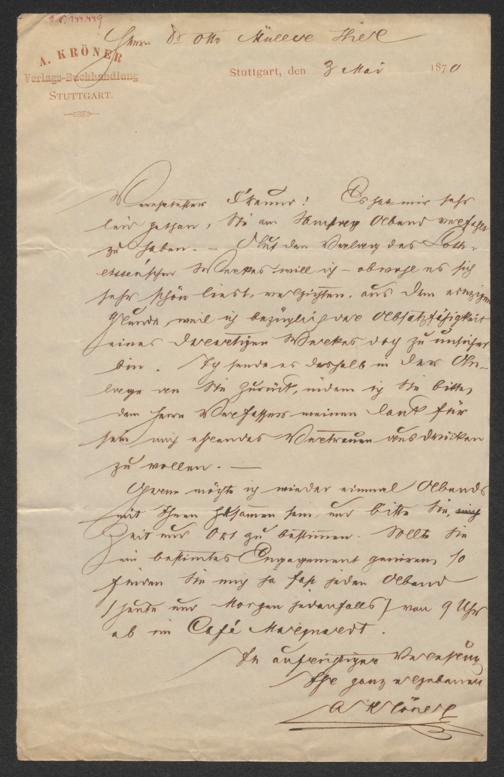 Herrn Dr Otto Müller Hier
A. KRÖNER
Verlags-Buchhandlung
STUTTGART.
Stuttgart, den 3 Mai 1870
Verehrtester Freund! Es hat mir sehr
leid gethan, Sie am Abend verfehlt
zu haben. — Auf den Verlag des
Werkes will ich – obwohl es sich
sehr schön liest, verzichten, aus dem einzigen
Grunde, weil ich bezüglich der Absatzfähigkeit
eines derartigen Werkes doch zu unsicher
bin. Ich sende es deshalb in der An-
lage an Sie zurück, indem ich Sie bitte,
dem Herrn Verfasser meinen Dank für
sein mich ehrendes Vertrauen ausdrücken
zu wollen. —
Gerne möchte ich wieder einmal Abends
mit Ihnen zusamen sein und bitte Sie,
Zeit und Ort zu bestimmen. Sollte Sie
ein bestimtes Engagement geniren, so
finden Sie mich ja fast jeden Abend
(heute und Morgen jedenfalls) von 9 Uhr
ab im Café Marquardt.
In aufrichtiger Verehrung
Ihr ganz ergebener
A Kröner